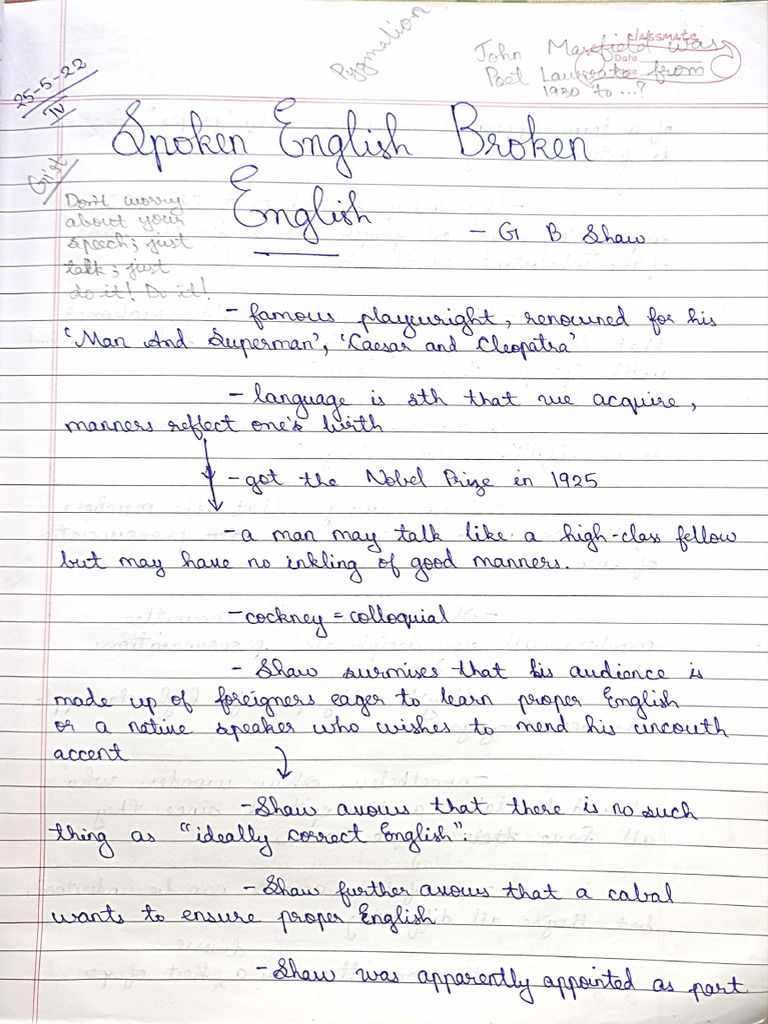 Pygmalion
John Masefield was
Poet Laureate from
1930 to ...?
classmate
Date
Page
25-5-22
IV
Gist
Spoken English Broken
English
Don't worry
about your
speech; just
talk; just
do it! Do it!
- G B Shaw
- famous playwright, renowned for his
'Man And Superman', 'Caesar and Cleopatra'
- language is sth that we acquire,
manners reflect one's birth
- got the Nobel Prize in 1925
- a man may talk like a high-class fellow
but may have no inkling of good manners.
- cockney = colloquial
- Shaw surmises that his audience is
made up of foreigners eager to learn proper English
or a native speaker who wishes to mend his uncouth
accent
- Shaw avows that there is no such
thing as "ideally correct English".
- Shaw further avows that a cabal
wants to ensure proper English
- Shaw was apparently appointed as part